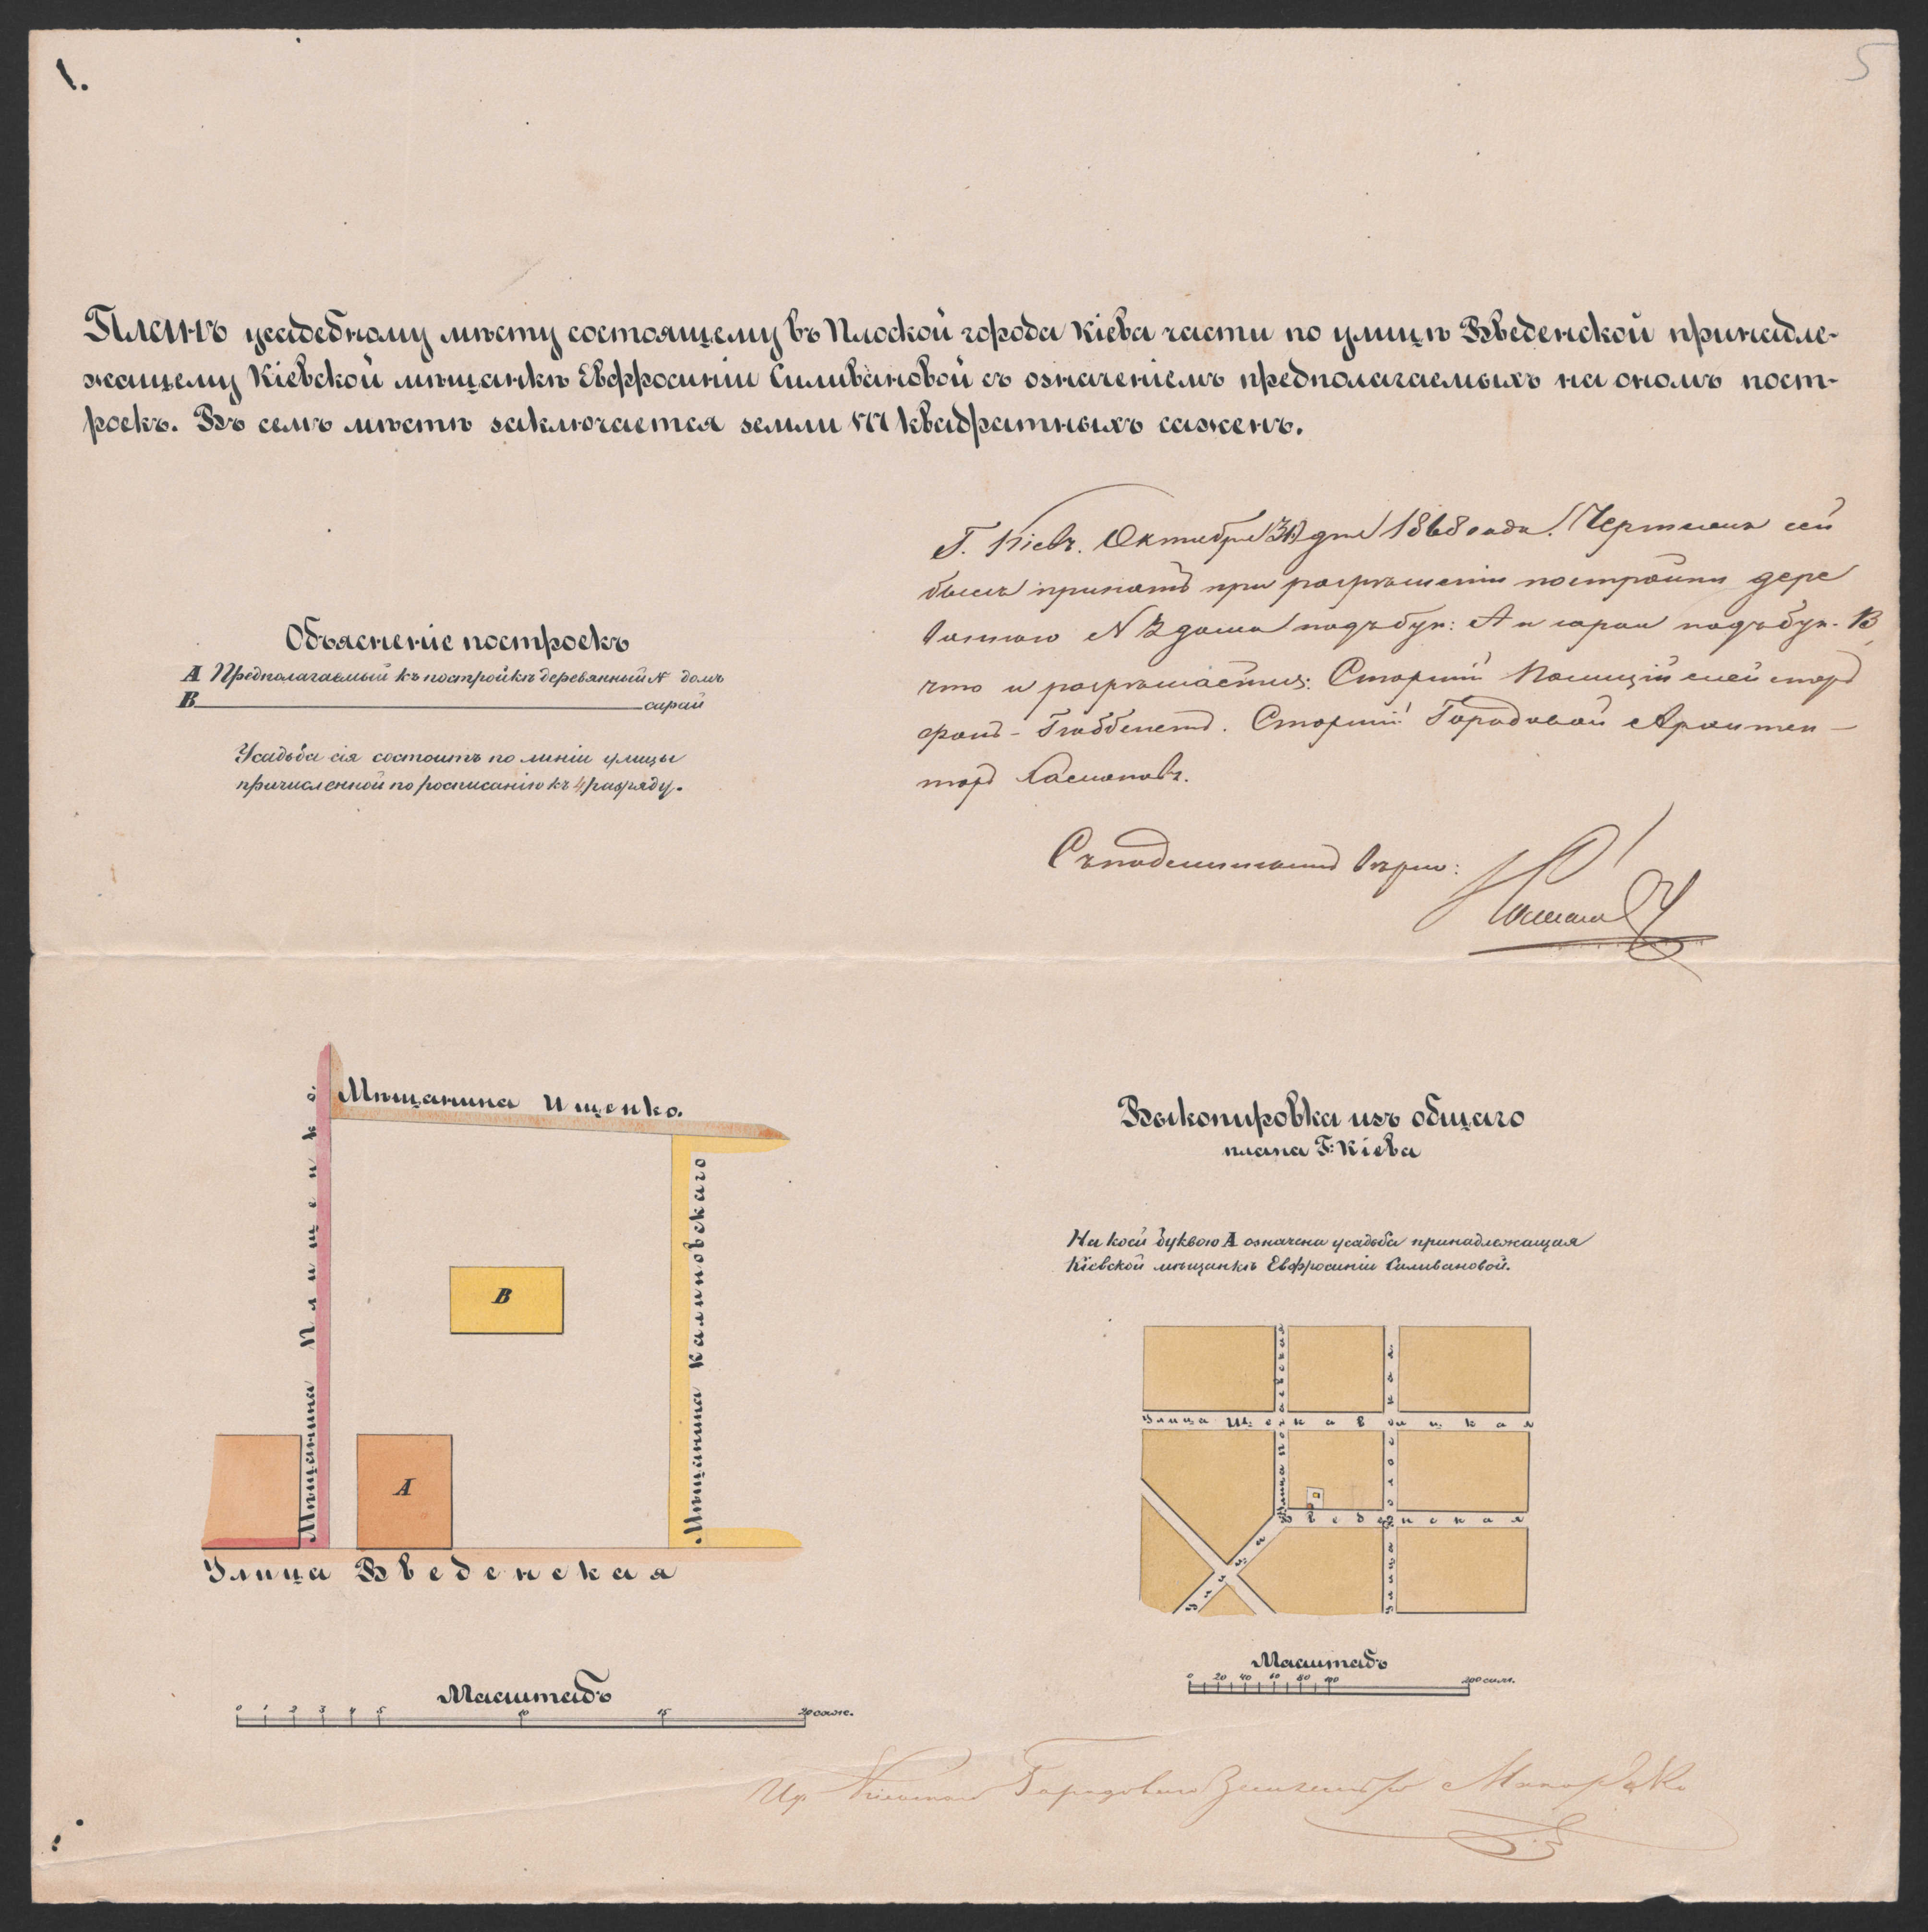 1.
5
Планъ усадебному мѣсту состоящему въ Плоской города Кіева части по улицѣ Введенской принадле-
жащему Кіевской мѣщанкѣ Евфросиніи Силивановой съ означеніемъ предполагаемыхъ на ономъ пост-
роекъ. Въ семъ мѣстѣ заключается земли квадратныхъ сажень.
Г. Кіевъ. Октября 31 дня 1868 года. Чертежъ сей
былъ принятъ при разрѣшеніи постройки дере
вяннаго № дома подъ бук: А и сарая подъ бук. В
что и разрѣшается: Старшій Полиціймейстеръ
фонъ-Гюббенетъ. Старшій Городовой Архитек-
торъ
Съ подлиннымъ вѣрно:
Объясненіе построекъ
А Предполагаемый къ постройкѣ деревянный № домъ
В сарай
Усадьба сія состоитъ по линіи улицы
причисленной по росписанію къ 4 разряду.
Мѣщанина Ищенко.
Мѣщанина Плищенко
Мѣщанина Калиновскаго
В
А
Улица Введенская
Масштабъ
0 1 2 3 4 5 10 15 20 саж.
Выкопировка изъ общаго
плана Г: Кіева
На коей буквою А означена усадьба принадлежащая
Кіевской мѣщанкѣ Евфросиніи Силивановой.
Улица Щекавицкая
Введенская
Улица
Масштабъ
0 20 40 60 80 100 200 саж.
Городоваго